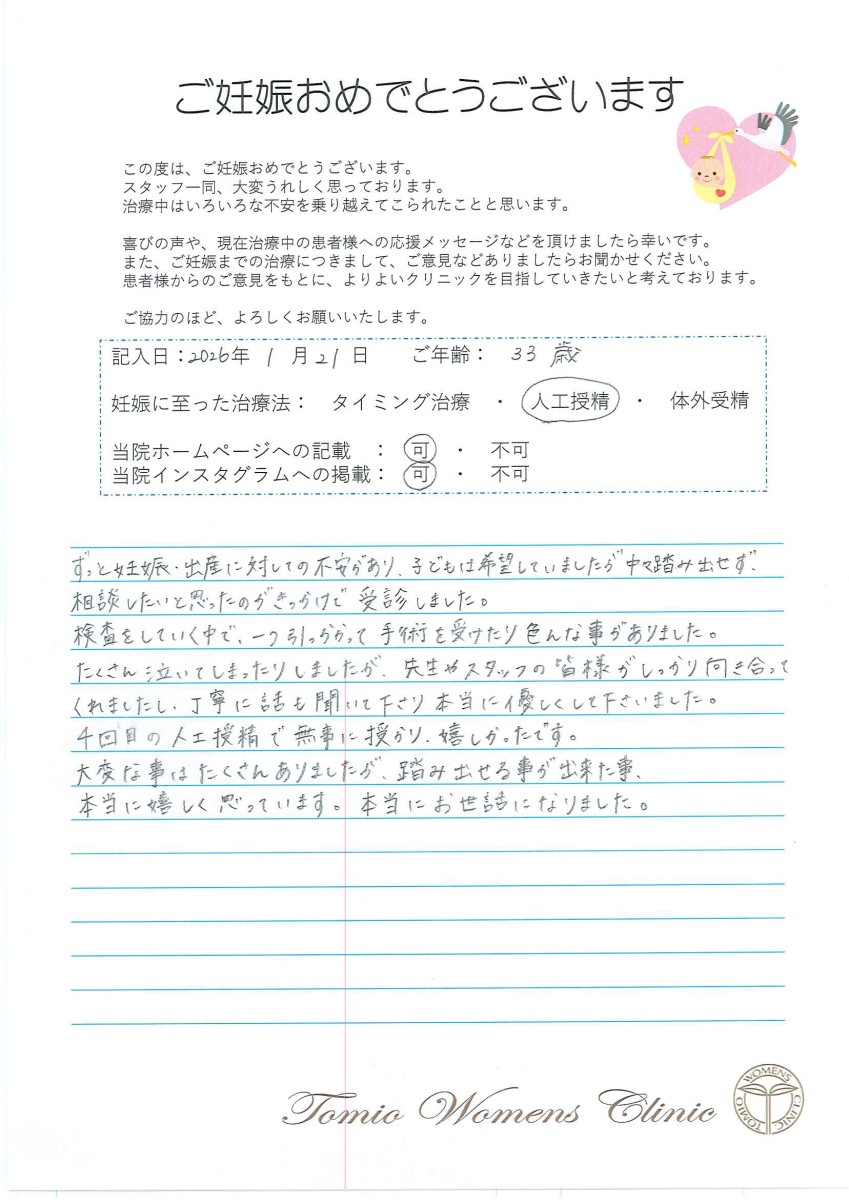 ご妊娠おめでとうございます
この度は、ご妊娠おめでとうございます。
スタッフ一同、大変うれしく思っております。
治療中はいろいろな不安を乗り越えてこられたことと思います。
喜びの声や、現在治療中の患者様への応援メッセージなどを頂けましたら幸いです。
また、ご妊娠までの治療につきまして、ご意見などありましたらお聞かせください。
患者様からのご意見をもとに、よりよいクリニックを目指していきたいと考えております。
ご協力のほど、よろしくお願いいたします。
記入日：2026年 1 月 21 日 ご年齢： 33 歳
妊娠に至った治療法： タイミング治療 ・ 人工授精 ・ 体外受精
当院ホームページへの記載 ： 可 ・ 不可
当院インスタグラムへの掲載： 可 ・ 不可
ずっと妊娠・出産に対しての不安があり、子どもは希望していましたが中々踏み出せず、
相談したいと思ったのがきっかけで 受診しました。
検査をしていく中で、一つ引っかかって 手術を受けたり色んな事がありました。
たくさん泣いてしまったりしましたが、先生やスタッフの皆様がしっかり向き合って
くれましたし、丁寧に話も聞いて下さり本当に優しくして下さいました。
4回目の人工授精で無事に授かり、嬉しかったです。
大変な事はたくさんありましたが、踏み出せる事が出来た事、
本当に嬉しく思っています。本当にお世話になりました。
Tomio Womens Clinic
TOMIO WOMENS CLINIC